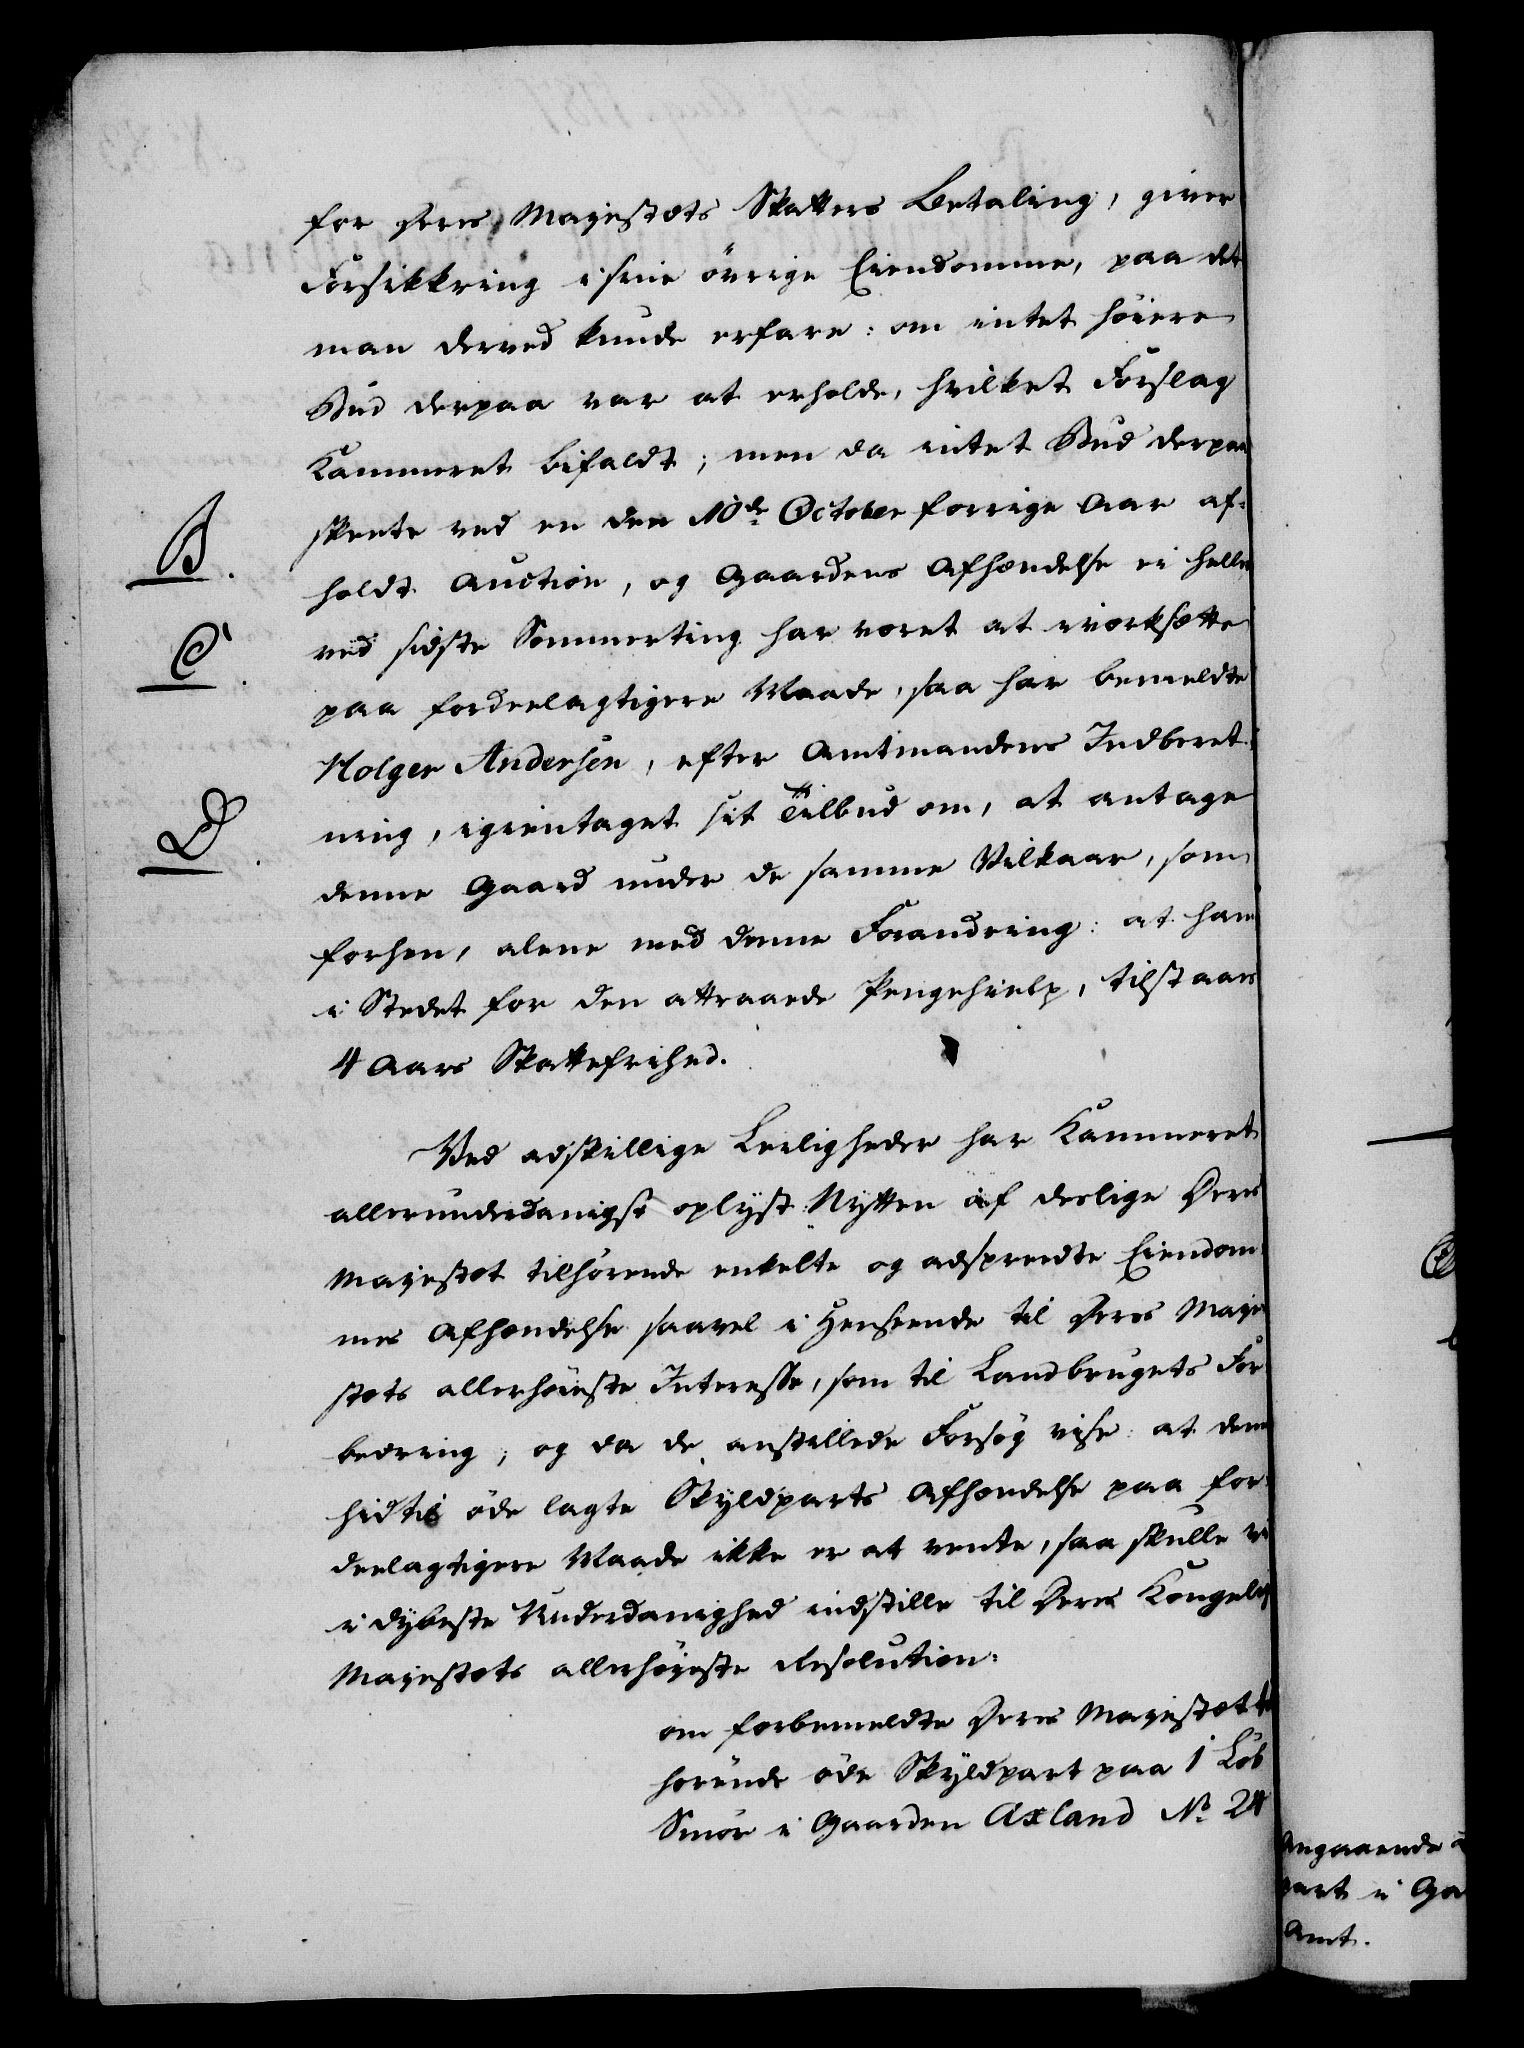 for Deres Majestæts Skatters Betaling, giver
Forsikkring i sine övrige Eiendomme, paa det
man derved kunde erfare: om intet höiere
Bud derpaa var at erholde, hvilket Forslag
Kammeret bifaldt; men da intet Bud derpaa
skeete ved en den 10de October forrige Aar af-
holdt Auction, og Gaardens Afhændelse ei heller
B.
ved sidste Sommerting har været at iværksætte
C.
paa fordeelagtigere Maade, saa har bemeldte
Holger Andersen, efter Amtmandens Indberet-
ning, igientaget sit Tilbud om, at antage
D.
denne Gaard under de samme Vilkaar, som
forhen, alene med denne Forandring: at ham
i Stedet for den attraaede Pengehielp, tilstaaes
4 Aars Skattefrihed.
Ved adskillige Leiligheder har Kammeret
allerunderdanigst oplyst Nytten af deslige Deres
Majestæt tilhörende enkelte og adspreedte Eiendom-
mes Afhændelse saavel i Henseende til Deres Maje-
stæts allerhöieste Interesse, som til Landbrugets For-
bedring; og da de anstillede Forsög vise: at denne
hidtil öde lagte Skyldparts Afhændelse paa for-
deelagtigere Maade ikke er at vente, saa skulle vi
i dybeste Underdanighed indstille til Deres Kongelig
Majestæts allerhöyeste Resolution:
om forbemeldte Deres Majestæt til
hörende öde Skyldpart paa 1 Löb
Smör i Gaarden Axland No 24
Angaaende
part i Ga
Amt.